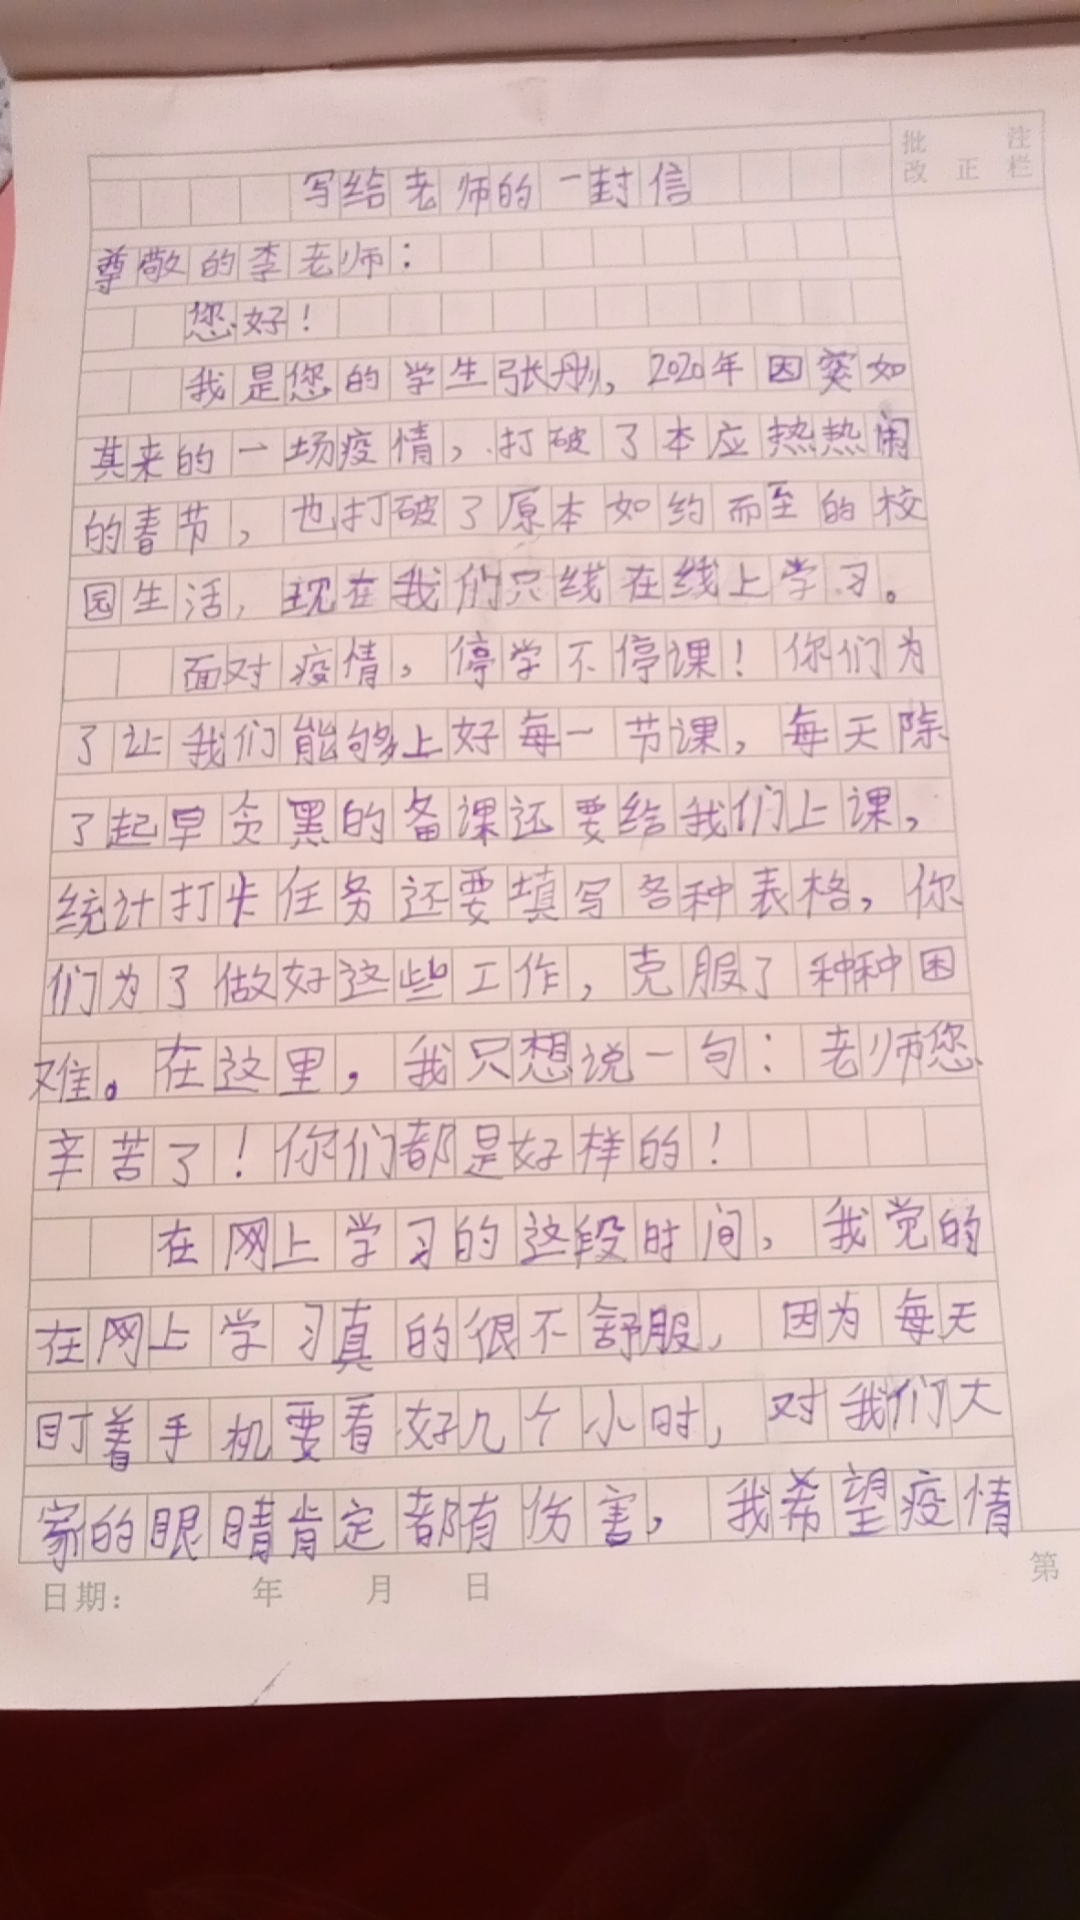 批 注
改 正 栏
写给老师的一封信
尊敬的李老师：
您好！
我是您的学生张彤，2020年因突如
其来的一场疫情，打破了本应热热闹
的春节，也打破了原本如约而至的校
园生活，现在我们只线在线上学习。
面对疫情，停学不停课！你们为
了让我们能够上好每一节课，每天除
了起早贪黑的备课还要给我们上课，
统计打卡任务还要填写各种表格，你
们为了做好这些工作，克服了种种困
难。在这里，我只想说一句：老师您
辛苦了！你们都是好样的！
在网上学习的这段时间，我觉的
在网上学习真的很不舒服，因为每天
盯着手机要看好几个小时，对我们大
家的眼睛肯定都有伤害，我希望疫情
日期： 年 月 日
第